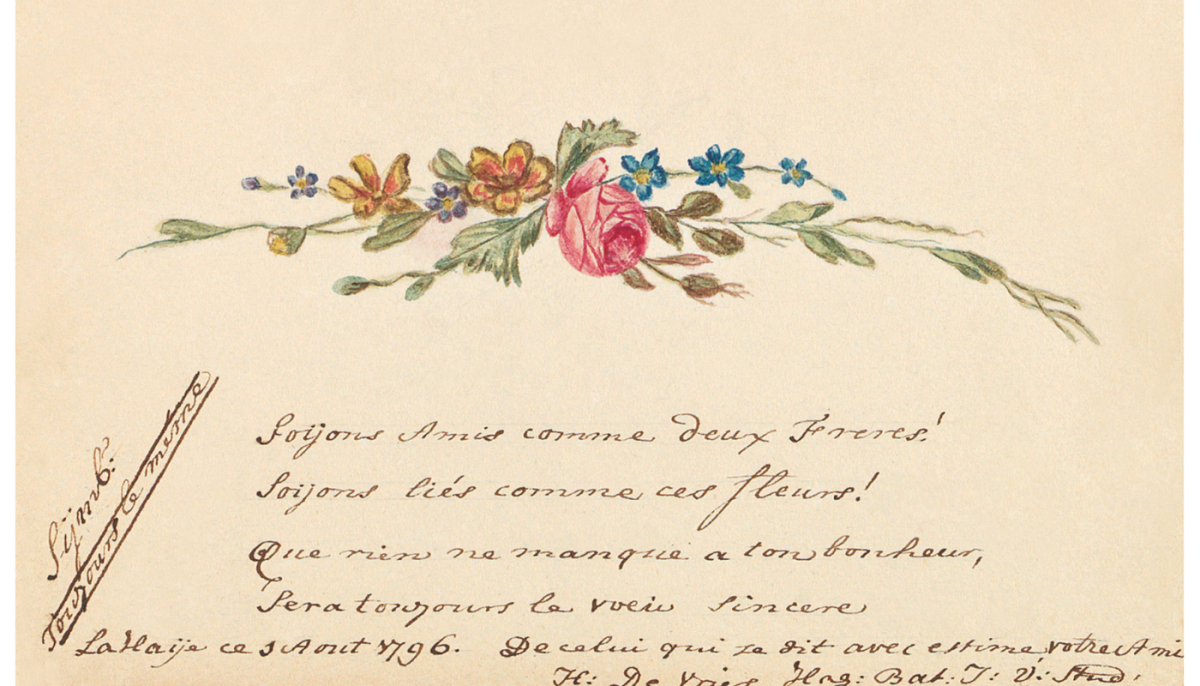 Sijmb:
Toujours le meme
Soijons Amis comme deux Freres!
Soijons liés comme ces fleurs!
Que rien ne manque a ton bonheur,
Sera toujours le voeu sincere
La Haije ce 1 Aout 1796. De celui qui se dit avec estime votre Ami
H: De Vries Hag: Bat: J: V: Stud: